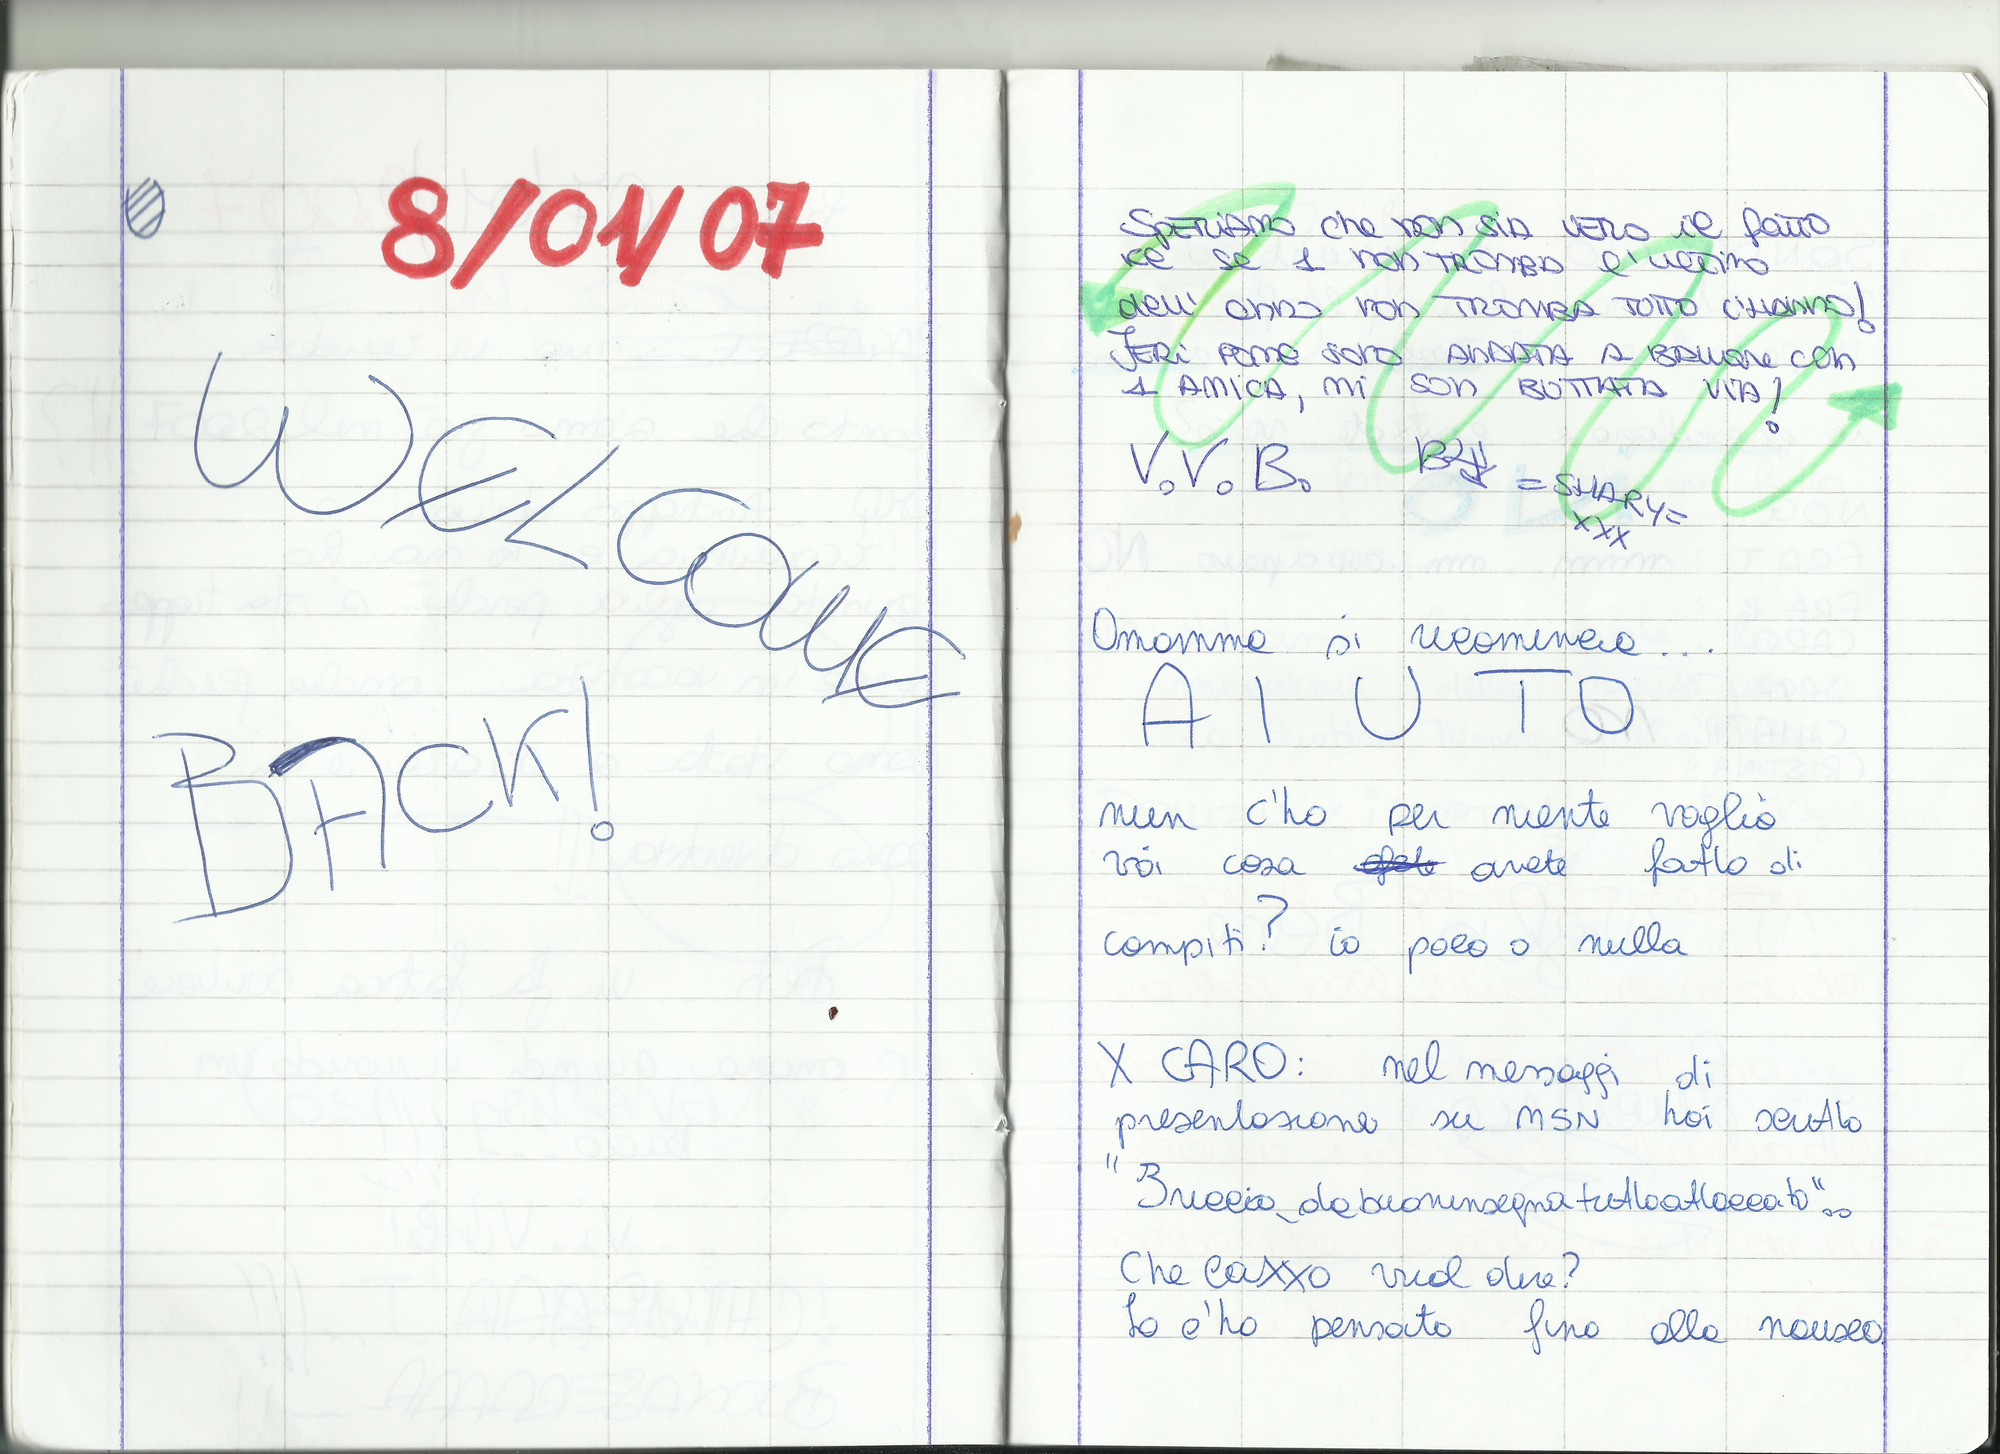 8/01/07
WELCOME
BACK!
SPERIAMO che non sia vero il fatto
ke se 1 non TROMBA l'ultimo
dell'anno non TROMBA TUTTO L'HANNO!
IERI pome sono ANDATA A BALLARE con
1 AMICA, mi SON BUTTATA VIA!
V.V.B. By
=SHARY=
XXX
Omamma si ricomincia...
AIUTO
nun c'ho per niente voglia
voi cosa avete fatto di
compiti? io poco o nulla
X CARO: nel messaggi di
presentazione su MSN hai scritto
"Bruccio_dabuoninsegnatuttoattaccato"..
Che CaXXO vuol dire?
Io c'ho pensato fino alla nausea